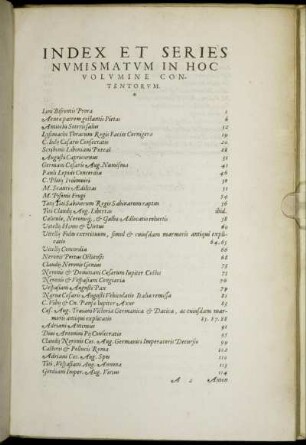 INDEX ET SERIES
NVMISMATVM IN HOC
VOLVMINE CON-
TENTORVM.
Iani Bifrontis Prora 1
Aeneæ patrem gestantis Pietas 6
Antonini
Lysimachi Thracum Regis Facies Cornigera 19
C. Iulij Cæsaris Consecratio 22
Scribonij Liboniani Puteal 28
Augusti Capricornus 31
Germani Cæsaris Aug. Numisma 41
Pauli Lepidi Concordia 46
C. Plotij
M. Scauri Aedilitas 51
M. Pisonis Frugi 54
Tatij Sabinorum Regis Sabinarum raptus 56
Titi Claudij Aug. Libertas ibid.
Caleniæ, Neronisq́;, & Galbæ Adlocutio militaris 58
Vitellij Honos & Virtus 62
Vitellij Fides exercituum, simul & eiusdam marmoris antiqui expli-
catio 64.65
Vitellij Concordia 66
Neronis Portus Ostiensis 68
Claudij Neronis Genius 72
Neronis & Domitiani Cæsarum Iupiter Custos 75
Neronis & Vespasiani Congiaria 76
Vespasiani Augusti Pax 79
Neruæ Cæsaris Augusti Vehiculatio Italiæ remissa 81
C. Vibij & Cn. Pansæ Iupiter Axur 83
Cæs. Aug. Traiani Victoria Germanica & Dacica, ac eiusdam mar-
moris antiqui explicatio 85.87.88
Adriani Antinous 91
Diui Antonini Pij Consecratio 95
Claudij Neronis Cæs. Aug. Germanici Imperatoris Decursio 99
Castoris & Pollucis Roma 112
Adriani Cæs. Aug. Spes 110
Titi, Vespasiani Aug. Annona 113
Gordiani Imper. Aug. Virtus 114
A 2